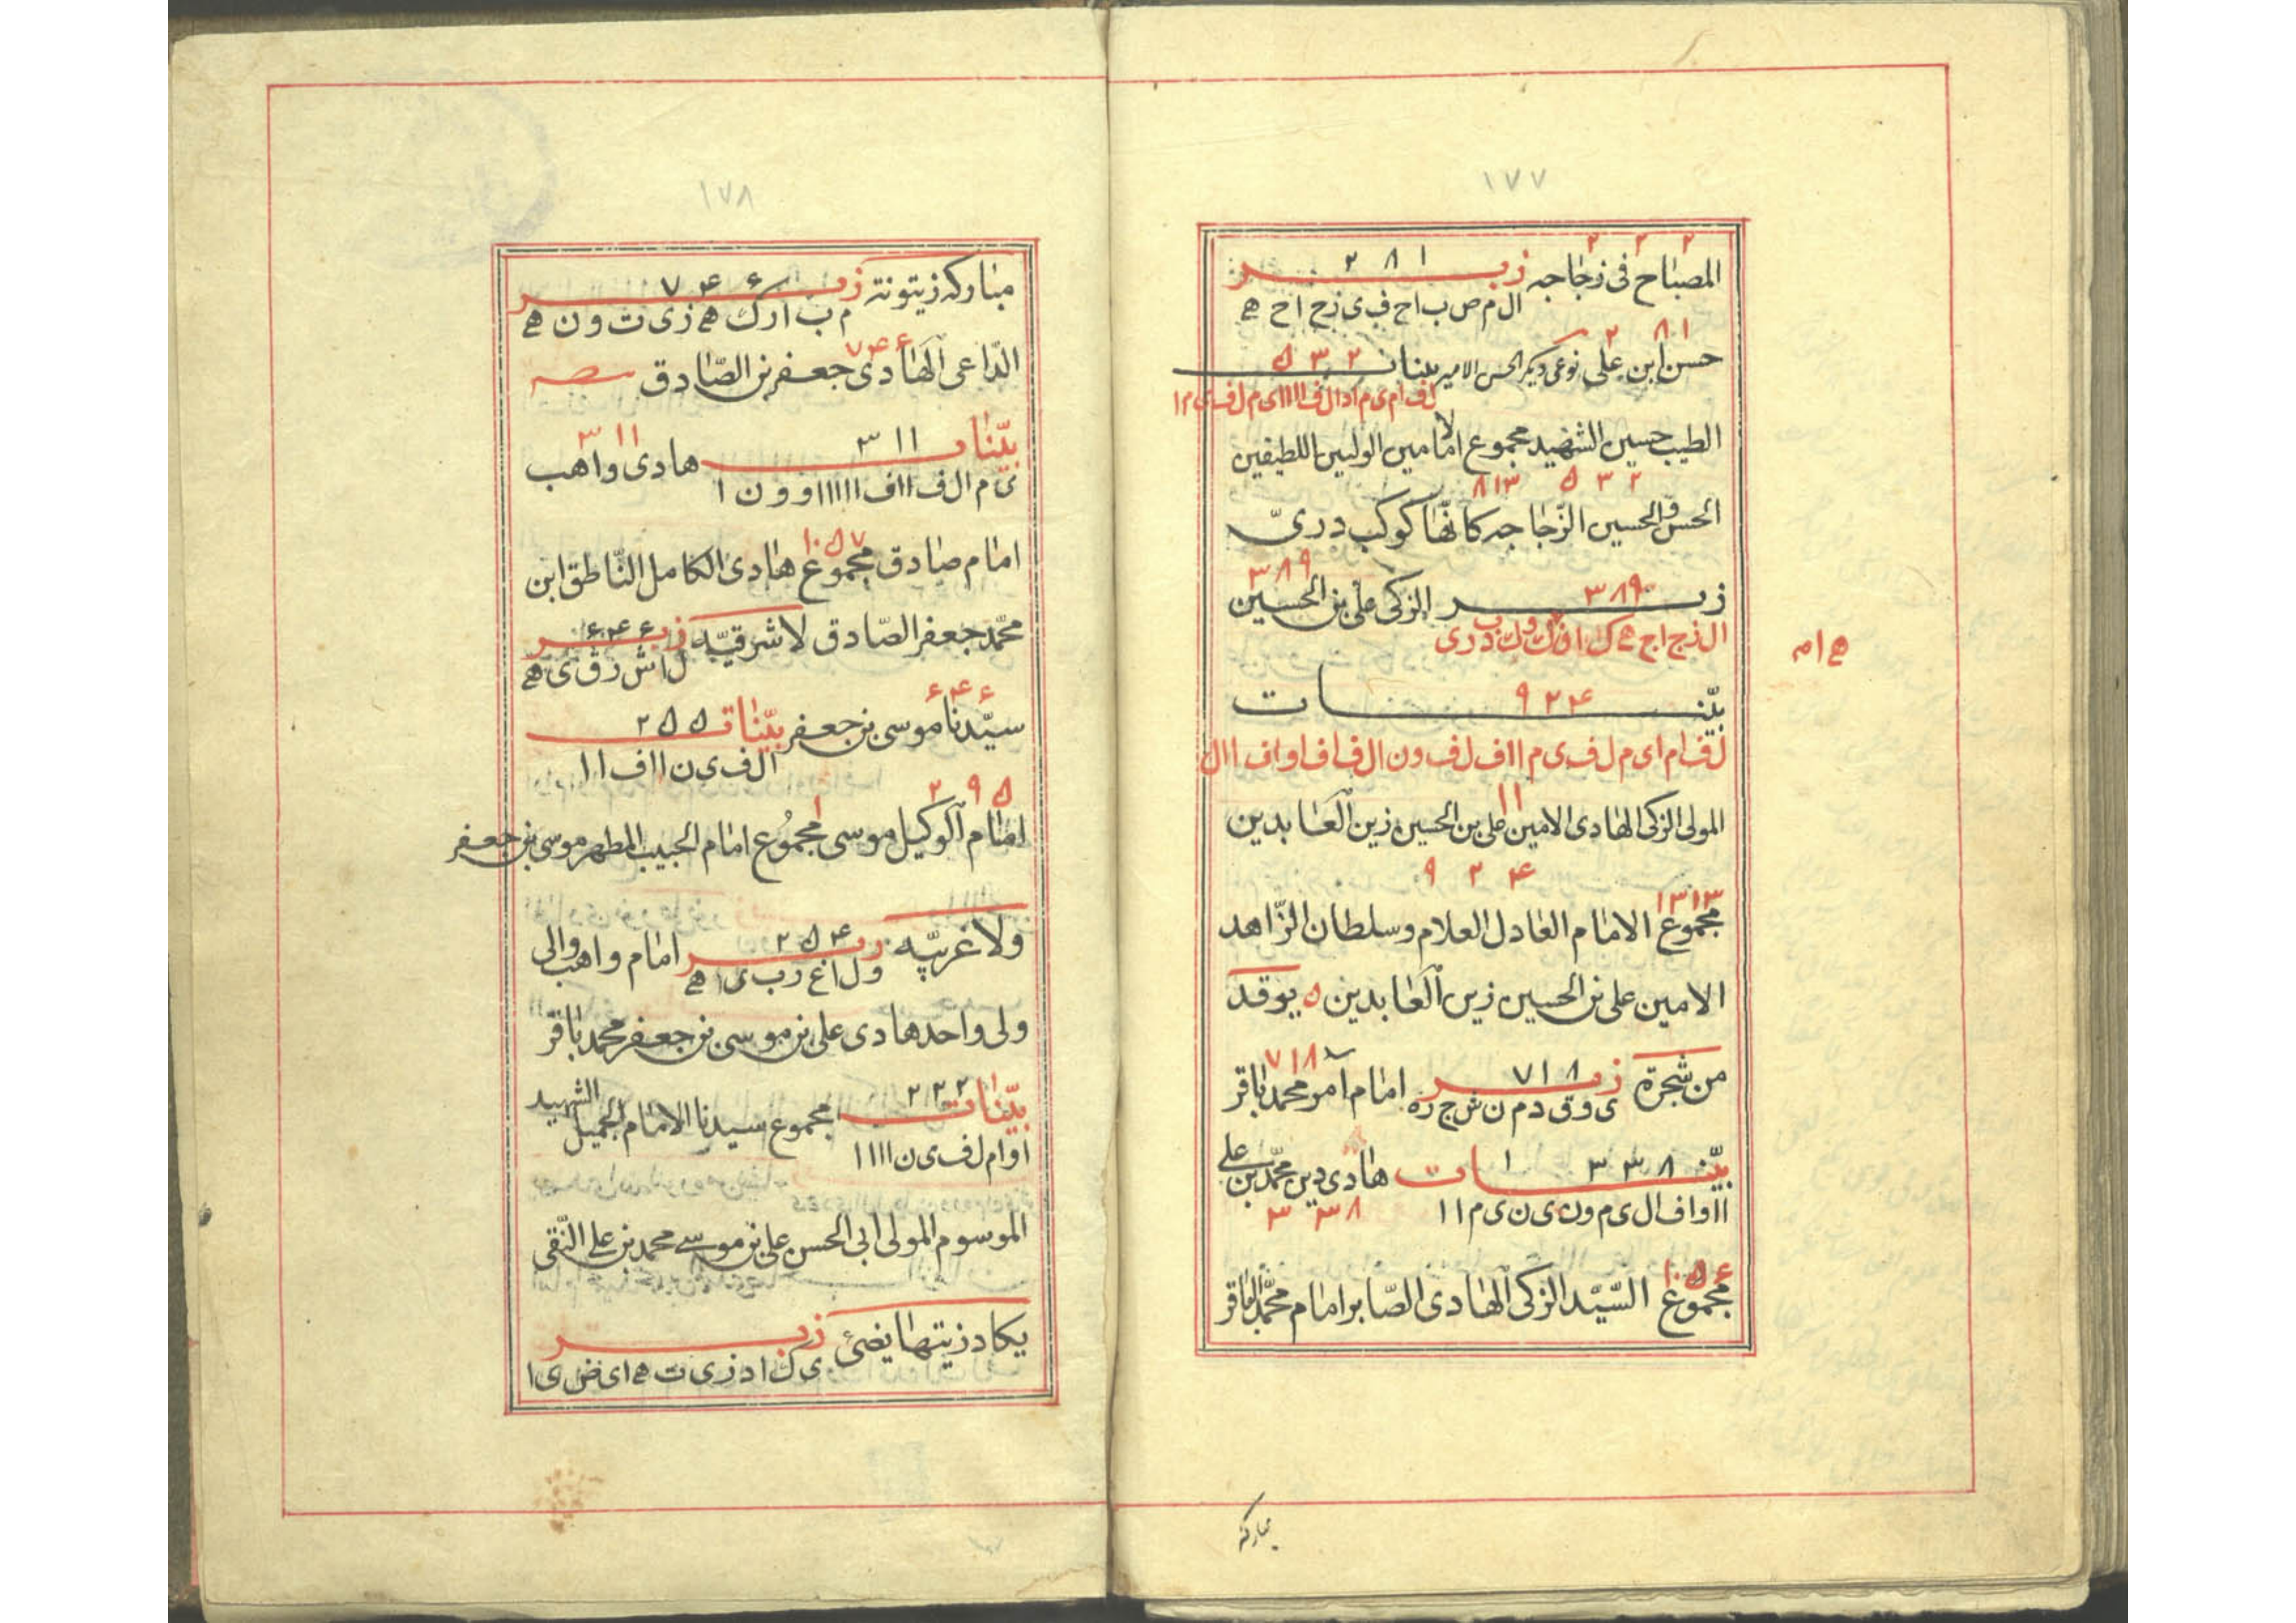 ١٧٧
٢ ٢ ٢
المصباح فی زجاجه زبـر ٢٨١
ال م ص ب اح ف ی زج اج ه
٢ ٨١
حسن ابن علی نوعی دیگر الحسن الامیر بینات ٥٣٢
الطیب حسین الشهید مجموع الامامین الولیین اللطیفین
٨١٣ ٥٣٢
الحسن و الحسین الزجاجه کانّها کوکب دریّ
زبـر ٣٨٩ الزکی علی بن الحسین ٣٨٩
ال زج اج ه ک ان ه ام
ک وک ب دری
بیّنـات ٩٢۴
لف ام ای م ل ف ی م ااف ل ف ون ال ف اف اواف اال
المولی الزکی الهادی الامین علی بن الحسین زین العٰابدین
١١
٩٢۴
١٣١٣
مجموع الامٰام العٰادل العلام و سلطان الزّاهد
الامین علی بن الحسین زین العٰابدین ٥ یوقد
من شجرة زبـر ٧١٨ امٰام آمر محمد بٰاقر ٧١٨
ی وق دم ن ش ج ره
بیّنـات ٣٣٨ هٰادی دین محمّد بن علی
ااواف ال ی م ون ی ن ی م اا ٣٣٨
١٠٥۶
مجموع السّیّد الزکی الهٰادی الصّابر امٰام محمّد البٰاقر
مبارکة
١٧٨
مبٰارکه زیتونة زبـر ٧۴۶
م ب ارک ه زی ت ون ه
الدّاعی الهٰادی جعفر بن الصّٰادق ٧۴۶
بیّنٰات ٣١١ هادی واهب ٣١١
ی م ال ف ااف اااااا وون ا
امٰام صٰادق مجموع هٰادی الکامل النّاطق ابن ١٠٥٧
محمّد جعفر الصّادق لا شرقیّه زبـر ۶۴۶
ل اش رق ی ه
سیّدنا موسی بن جعفر بیّنٰات ٢٥٥ ۶۴۶
ال ف ی ن ااف اا
٢٩٥
امٰام الوکیل موسی مجمُوع امٰام الحبیب المطهر موسی بن جعفر
و لا غربیّه زبـر ٢٥۴ امٰام واهب والی
ول اغ رب ی ه
ولی واحد هادی علی بن موسی بن جعفر محمد بٰاقر
بیّنٰات ٢٢٢ مجموع سیدنا الامٰام الجمیل الشهید
اوام ل ف ی ن اااا
الموسوم المولی ابی الحسن علی بن موسی محمد بن علی النّقی
یکاد زیتهٰا یضئ زبـر
ی ک اد زی ت ه ای ض ی ا